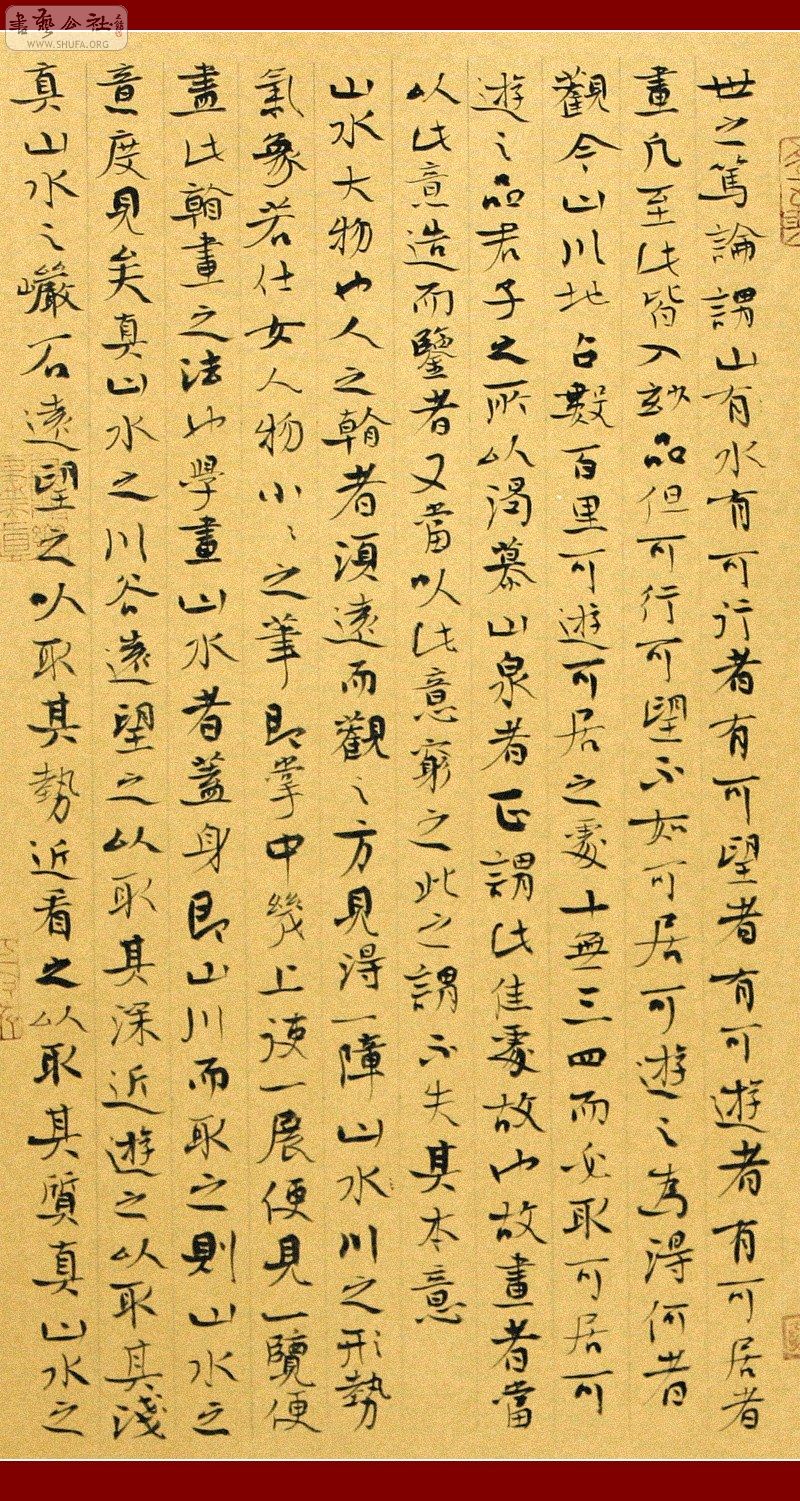 書藝公社
WWW.SHUFA.ORG
世之篤論謂山有水有可行者有可望者有可遊者有可居者
畫凡至此皆入妙品但可行可望不如可居可遊之為得何者
觀今山川地占數百里可遊可居之處十無三四而必取可居可
遊之品君子之所以渴慕山泉者正謂此佳處故也故畫者當
以此意造而鑒者又當以此意窮之此之謂不失其本意
山水大物也人之翰者須遠而觀之方見得一障山水川之形勢
氣象若仕女人物小々之筆即掌中幾上使一展便見一覽便
盡此翰畫之法也學畫山水者蓋身即山川而取之則山水之
意度見矣真山水之川谷遠望之以取其深近遊之以取其淺
真山水之巖石遠望之以取其勢近看之以取其質真山水之